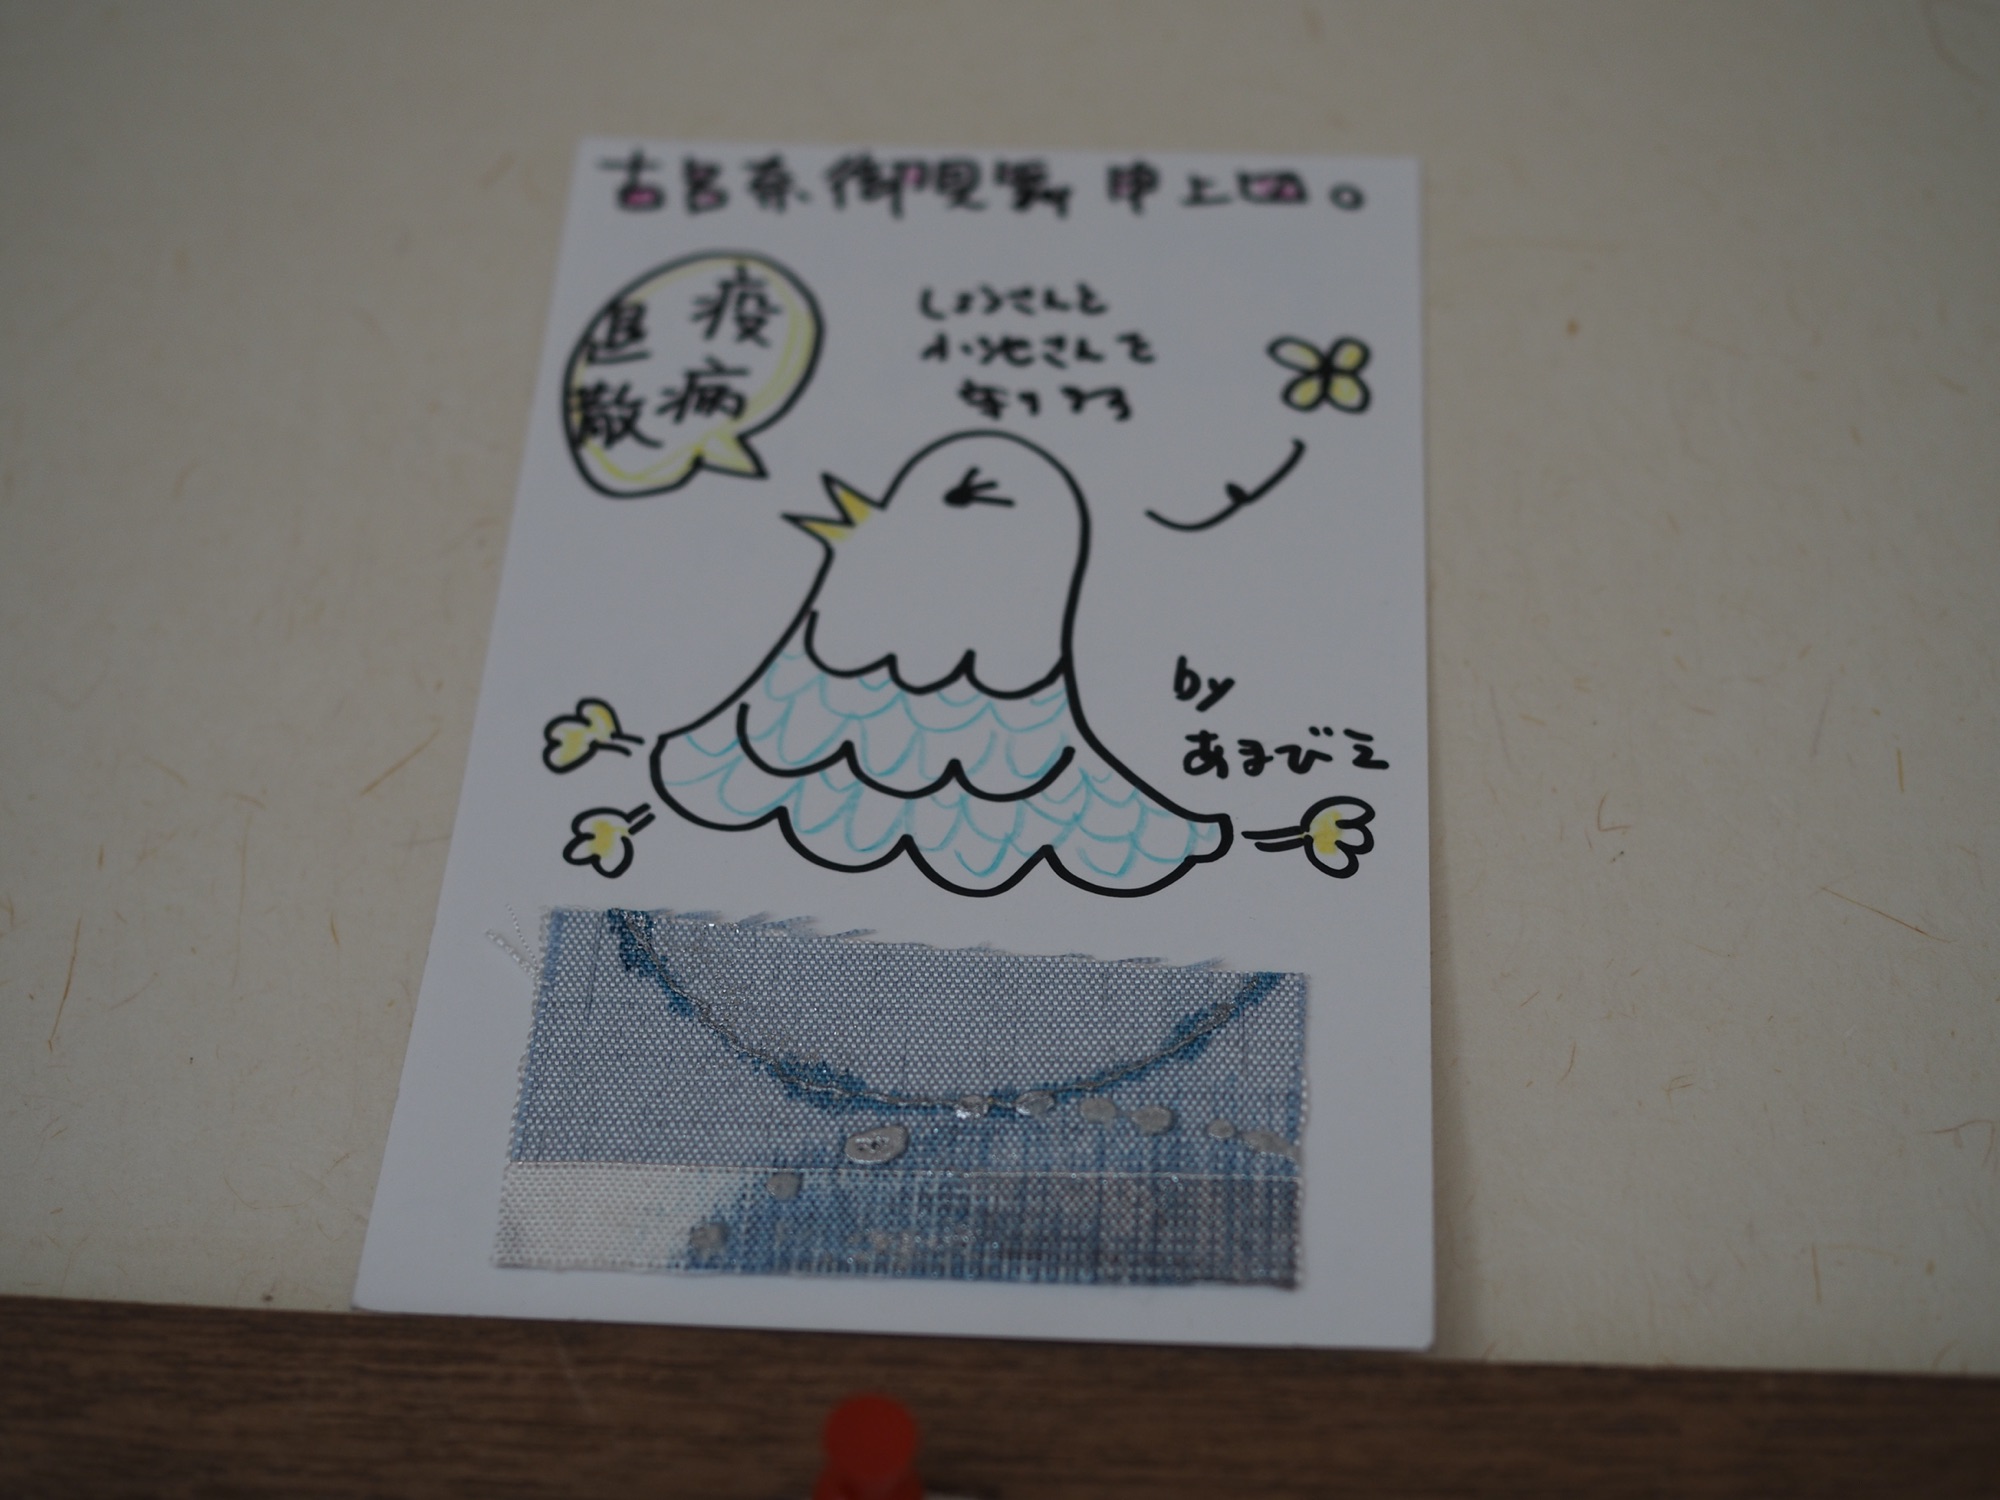 古呂奈御見舞申上四。
疫病
退散
しょうさんと
小池さんを
守ってる
by
あまびえ